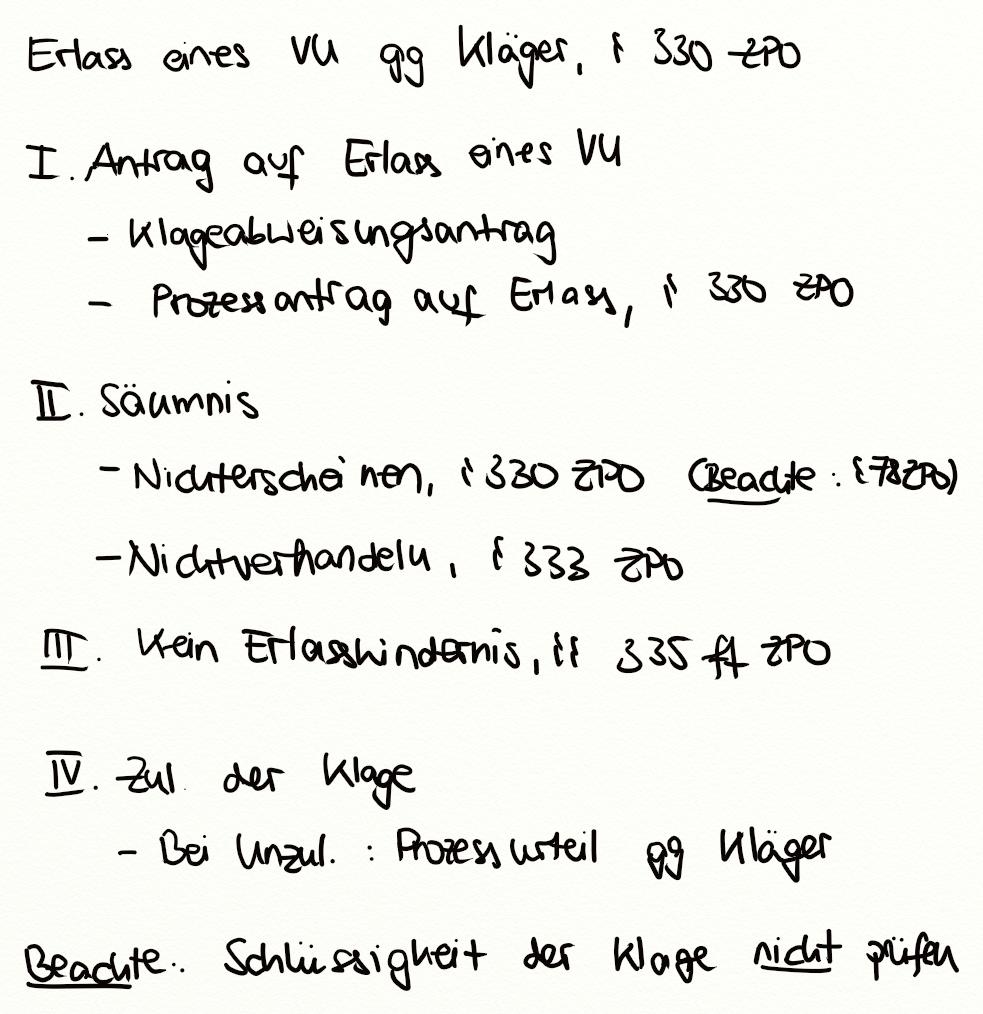 Erlass eines VU gg Kläger, § 330 ZPO
I. Antrag auf Erlass eines VU
- Klageabweisungsantrag
- Prozessantrag auf Erlass, § 330 ZPO
II. Säumnis
- Nichterscheinen, § 330 ZPO (Beachte: § 78 ZPO)
- Nichtverhandeln, § 333 ZPO
III. Kein Erlasshindernis, §§ 335 ff ZPO
IV. Zul. der Klage
- Bei Unzul. : Prozessurteil gg Kläger
Beachte: Schlüssigkeit der Klage nicht prüfen